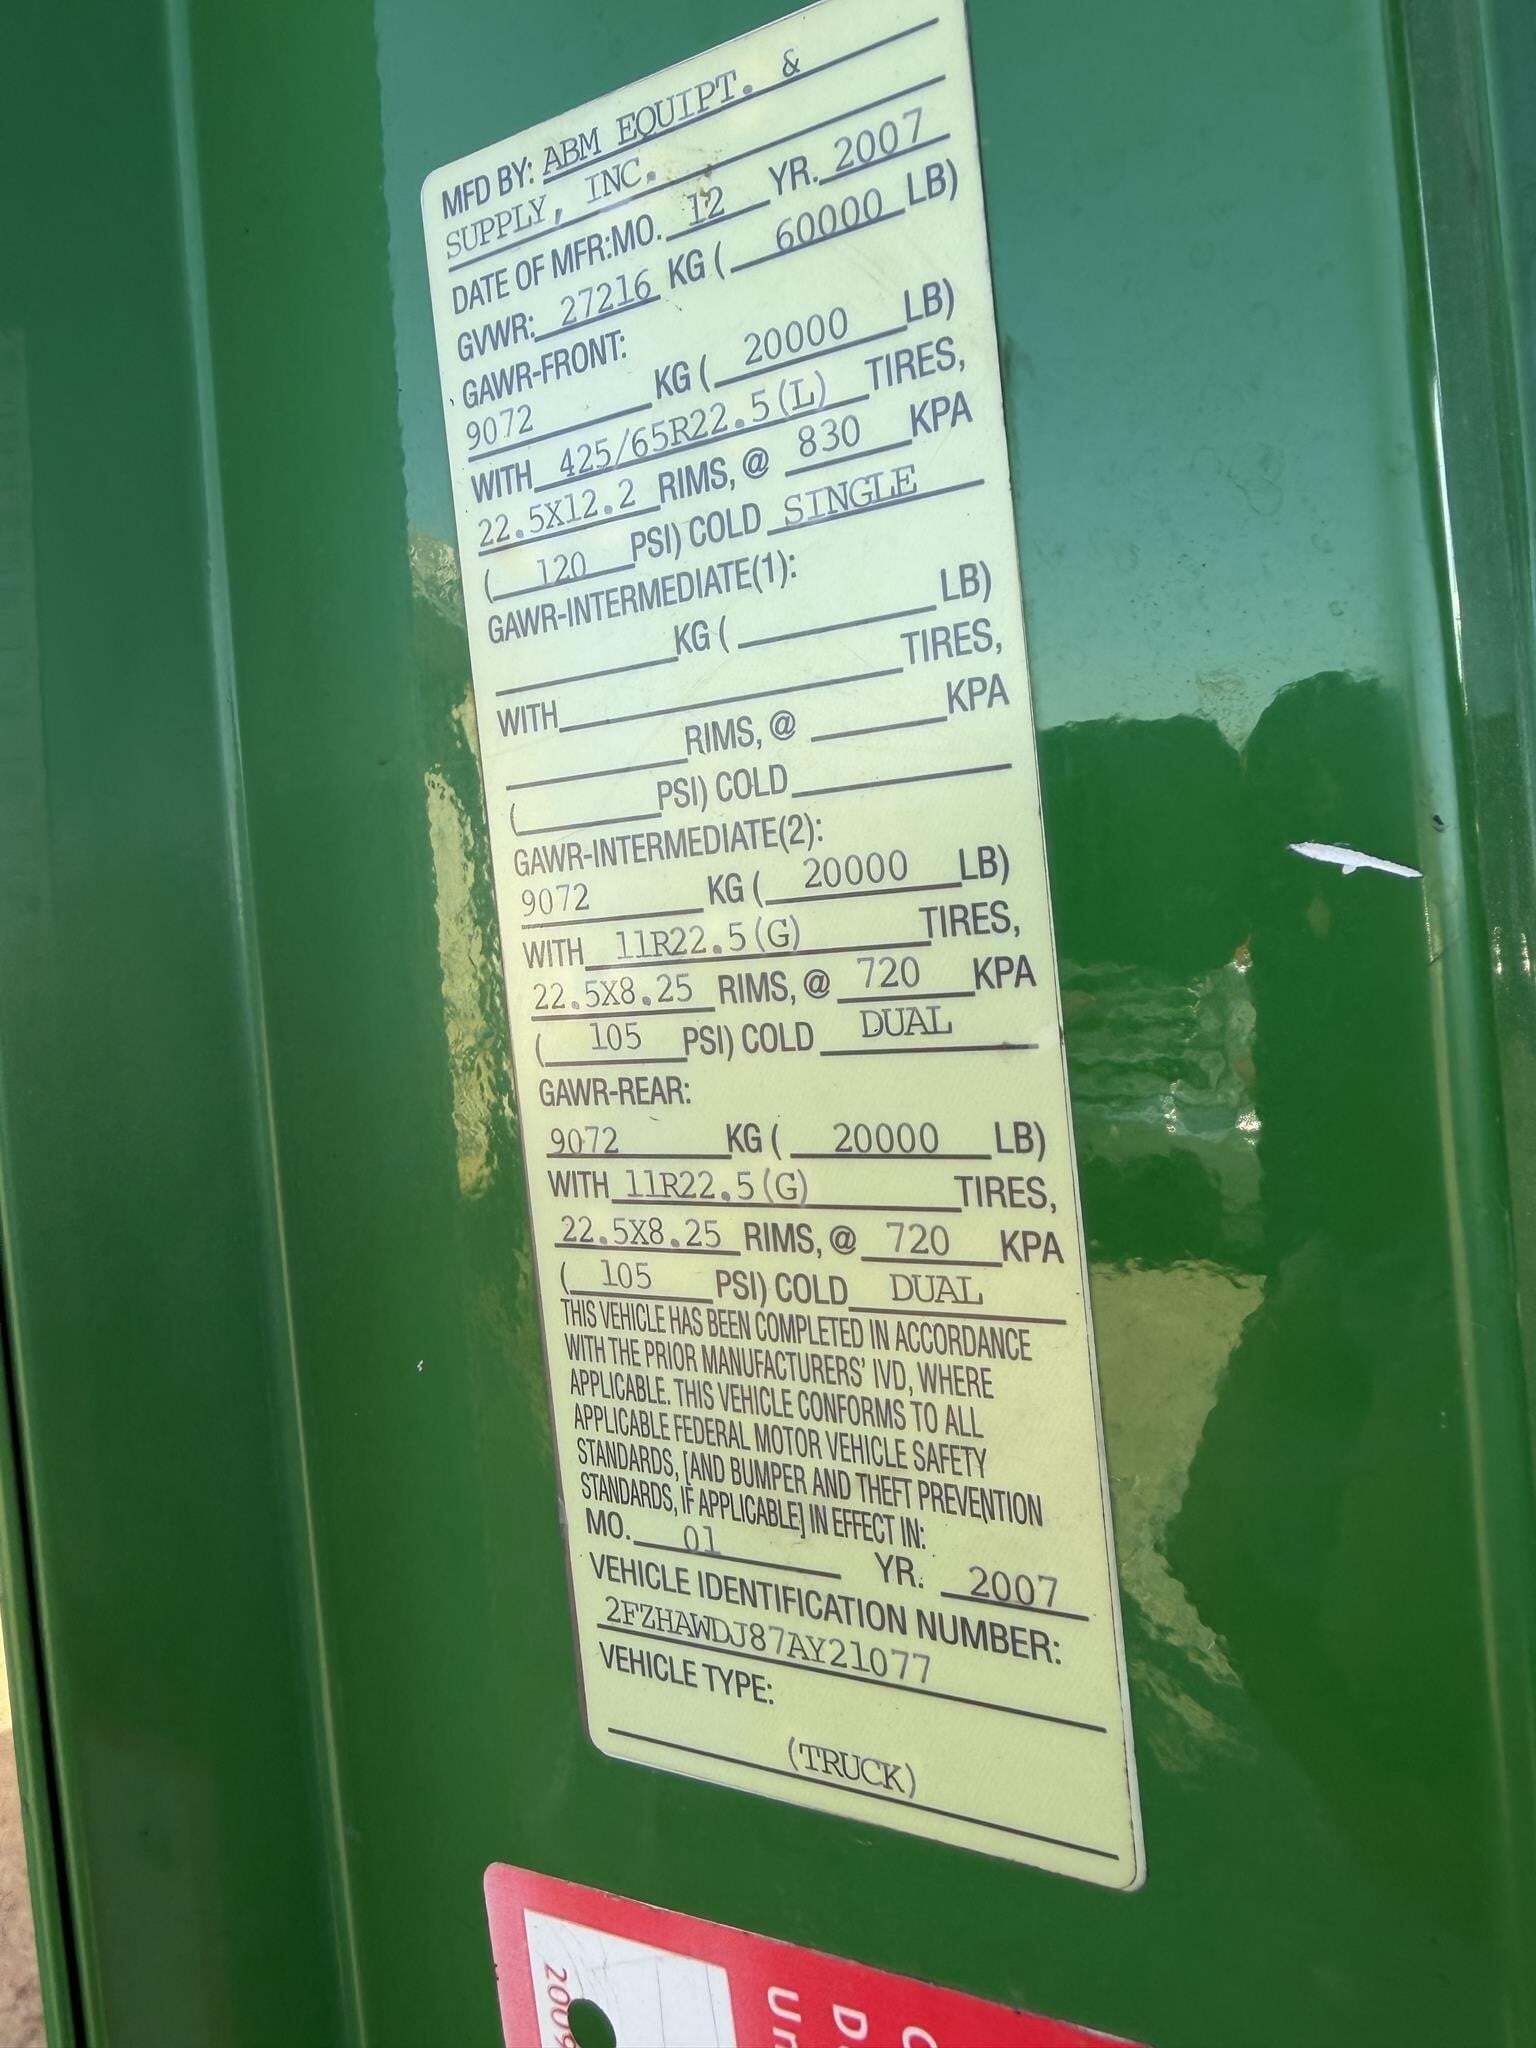 MFD BY: ABM EQUIPT. &
SUPPLY, INC.
DATE OF MFR:MO. 12 YR. 2007
GVWR: 27216 KG ( 60000 LB)
GAWR-FRONT:
9072 KG ( 20000 LB)
WITH 425/65R22.5(L) TIRES,
22.5X12.2 RIMS, @ 830 KPA
( 120 PSI) COLD SINGLE
GAWR-INTERMEDIATE(1):
KG ( LB)
WITH TIRES,
RIMS, @ KPA
( PSI) COLD
GAWR-INTERMEDIATE(2):
9072 KG ( 20000 LB)
WITH 11R22.5(G) TIRES,
22.5X8.25 RIMS, @ 720 KPA
( 105 PSI) COLD DUAL
GAWR-REAR:
9072 KG ( 20000 LB)
WITH 11R22.5(G) TIRES,
22.5X8.25 RIMS, @ 720 KPA
( 105 PSI) COLD DUAL
THIS VEHICLE HAS BEEN COMPLETED IN ACCORDANCE
WITH THE PRIOR MANUFACTURERS' IVD, WHERE
APPLICABLE. THIS VEHICLE CONFORMS TO ALL
APPLICABLE FEDERAL MOTOR VEHICLE SAFETY
STANDARDS, [AND BUMPER AND THEFT PREVENTION
STANDARDS, IF APPLICABLE] IN EFFECT IN:
MO. 01 YR. 2007
VEHICLE IDENTIFICATION NUMBER:
2FZHAWDJ87AY21077
VEHICLE TYPE:
(TRUCK)
2009